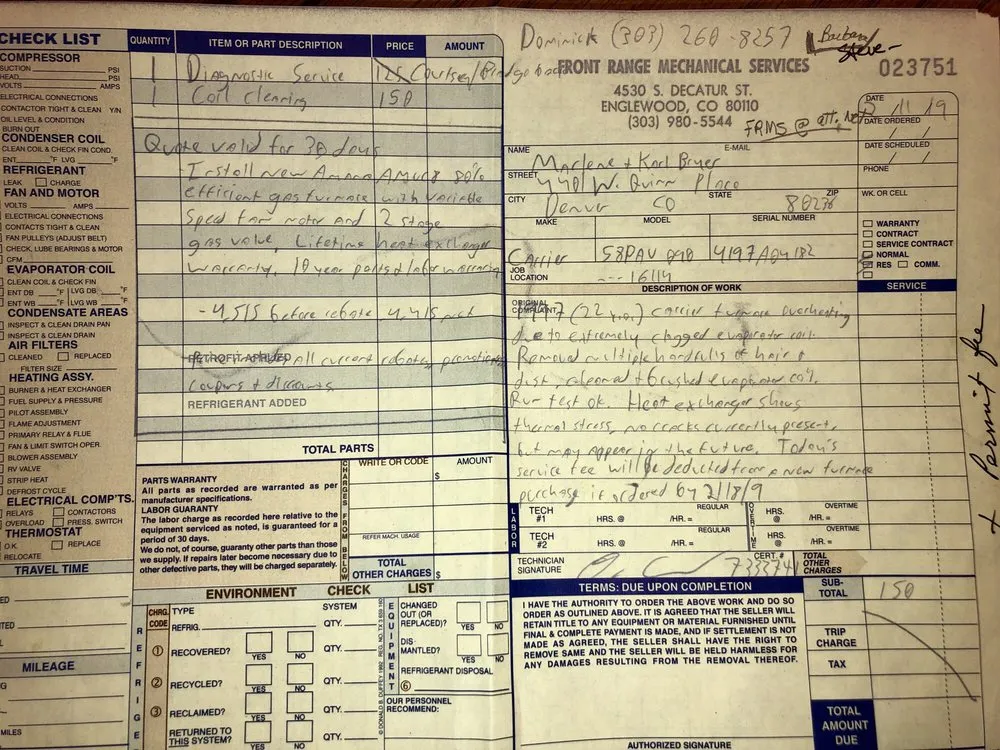 CHECK LIST
COMPRESSOR
SUCTION PSI
HEAD PSI
VOLTS AMPS
ELECTRICAL CONNECTIONS
CONTACTOR TIGHT & CLEAN Y/N
OIL LEVEL & CONDITION
BURN OUT
CONDENSER COIL
CLEAN COIL & CHECK FIN COND.
ENT. °F LVG °F
REFRIGERANT
LEAK CHARGE
FAN AND MOTOR
VOLTS AMPS
ELECTRICAL CONNECTIONS
CONTACTS TIGHT & CLEAN
FAN PULLEYS (ADJUST BELT)
CHECK, LUBE BEARINGS & MOTOR
CFM
EVAPORATOR COIL
CLEAN COIL & CHECK FIN
ENT DB °F LVG DB °F
ENT WB °F LVG WB °F
CONDENSATE AREAS
INSPECT & CLEAN DRAIN PAN
INSPECT & CLEAN DRAIN
AIR FILTERS
CLEANED REPLACED
FILTER SIZE
HEATING ASSY.
BURNER & HEAT EXCHANGER
FUEL SUPPLY & PRESSURE
PILOT ASSEMBLY
FLAME ADJUSTMENT
PRIMARY RELAY & FLUE
FAN & LIMIT SWITCH OPER.
BLOWER ASSEMBLY
RV VALVE
STRIP HEAT
DEFROST CYCLE
ELECTRICAL COMP'TS.
RELAYS CONTACTORS
OVERLOAD PRESS. SWITCH
THERMOSTAT
O.K. REPLACE
RELOCATE
TRAVEL TIME
MILEAGE
MILES
QUANTITY ITEM OR PART DESCRIPTION PRICE AMOUNT
1 Diagnostic Service 125 Courtesy
1 Coil cleaning 150
Quote valid for 30 days
- Install new Amana AMVC8 80%
efficient gas furnace with variable
speed fan motor and 2 stage
gas valve, Lifetime heat exchanger
warranty, 10 year parts & labor warranty
- 4,515 before rebate 4,415 net
RETROFIT APPLIED
all current rebates, promotions
coupons & discounts
REFRIGERANT ADDED
TOTAL PARTS
PARTS WARRANTY
All parts as recorded are warranted as per
manufacturer specifications.
LABOR GUARANTY
The labor charge as recorded here relative to the
equipment serviced as noted, is guaranteed for a
period of 30 days.
We do not, of course, guaranty other parts than those
we supply. If repairs later become necessary due to
other defective parts, they will be charged separately.
CHARGES FROM BELOW
WRITE OR CODE AMOUNT
$
REFER MACH. USAGE
TOTAL
OTHER CHARGES $
ENVIRONMENT CHECK LIST
CHRG. CODE TYPE SYSTEM
REFRIG. QTY.
① RECOVERED? YES NO QTY.
② RECYCLED? YES NO QTY.
③ RECLAIMED? YES NO QTY.
RETURNED TO
THIS SYSTEM? YES NO QTY.
EQUIPMENT
CHANGED
OUT (OR
REPLACED? YES NO
DIS-
MANTLED? YES NO
REFRIGERANT DISPOSAL
⑥
OUR PERSONNEL
RECOMMEND:
Dominick (303) 260-8257 Barbara
Steve
FRONT RANGE MECHANICAL SERVICES 023751
4530 S. DECATUR ST.
ENGLEWOOD, CO 80110
(303) 980-5544 FRMS @ att.net
DATE 11 19
DATE ORDERED
DATE SCHEDULED
NAME E-MAIL PHONE
Marlene & Karl Bruer
STREET W. Quinn Place
CITY STATE ZIP WK. OR CELL
Denver CO 80236
MAKE MODEL SERIAL NUMBER
Carrier 58PAV 4197A
JOB
LOCATION ---16114
WARRANTY
CONTRACT
SERVICE CONTRACT
NORMAL
RES COMM.
DESCRIPTION OF WORK SERVICE
ORIGINAL
COMPLAINT
1997 (22 y.o.) carrier furnace overheating
due to extremely clogged evaporator coil.
Removed multiple handfulls of hair &
dust, cleaned & brushed evaporator coil.
Run test ok. Heat exchanger shows
thermal stress, no cracks currently present,
but may appear in the future. Today's
service fee will be deducted from a new furnace
purchase if ordered by 2/18/9
+ Permit fee
LABOR
TECH #1 HRS. @ /HR. = REGULAR OVERTIME HRS. @ /HR. = OVERTIME
TECH #2 HRS. @ /HR. = REGULAR HRS. @ /HR. = OVERTIME
TECHNICIAN
SIGNATURE CERT. #
TOTAL OTHER CHARGES
TERMS: DUE UPON COMPLETION
I HAVE THE AUTHORITY TO ORDER THE ABOVE WORK AND DO SO
ORDER AS OUTLINED ABOVE. IT IS AGREED THAT THE SELLER WILL
RETAIN TITLE TO ANY EQUIPMENT OR MATERIAL FURNISHED UNTIL
FINAL & COMPLETE PAYMENT IS MADE, AND IF SETTLEMENT IS NOT
MADE AS AGREED, THE SELLER SHALL HAVE THE RIGHT TO
REMOVE SAME AND THE SELLER WILL BE HELD HARMLESS FOR
ANY DAMAGES RESULTING FROM THE REMOVAL THEREOF.
SUB-TOTAL 150
TRIP CHARGE
TAX
TOTAL AMOUNT DUE
AUTHORIZED SIGNATURE